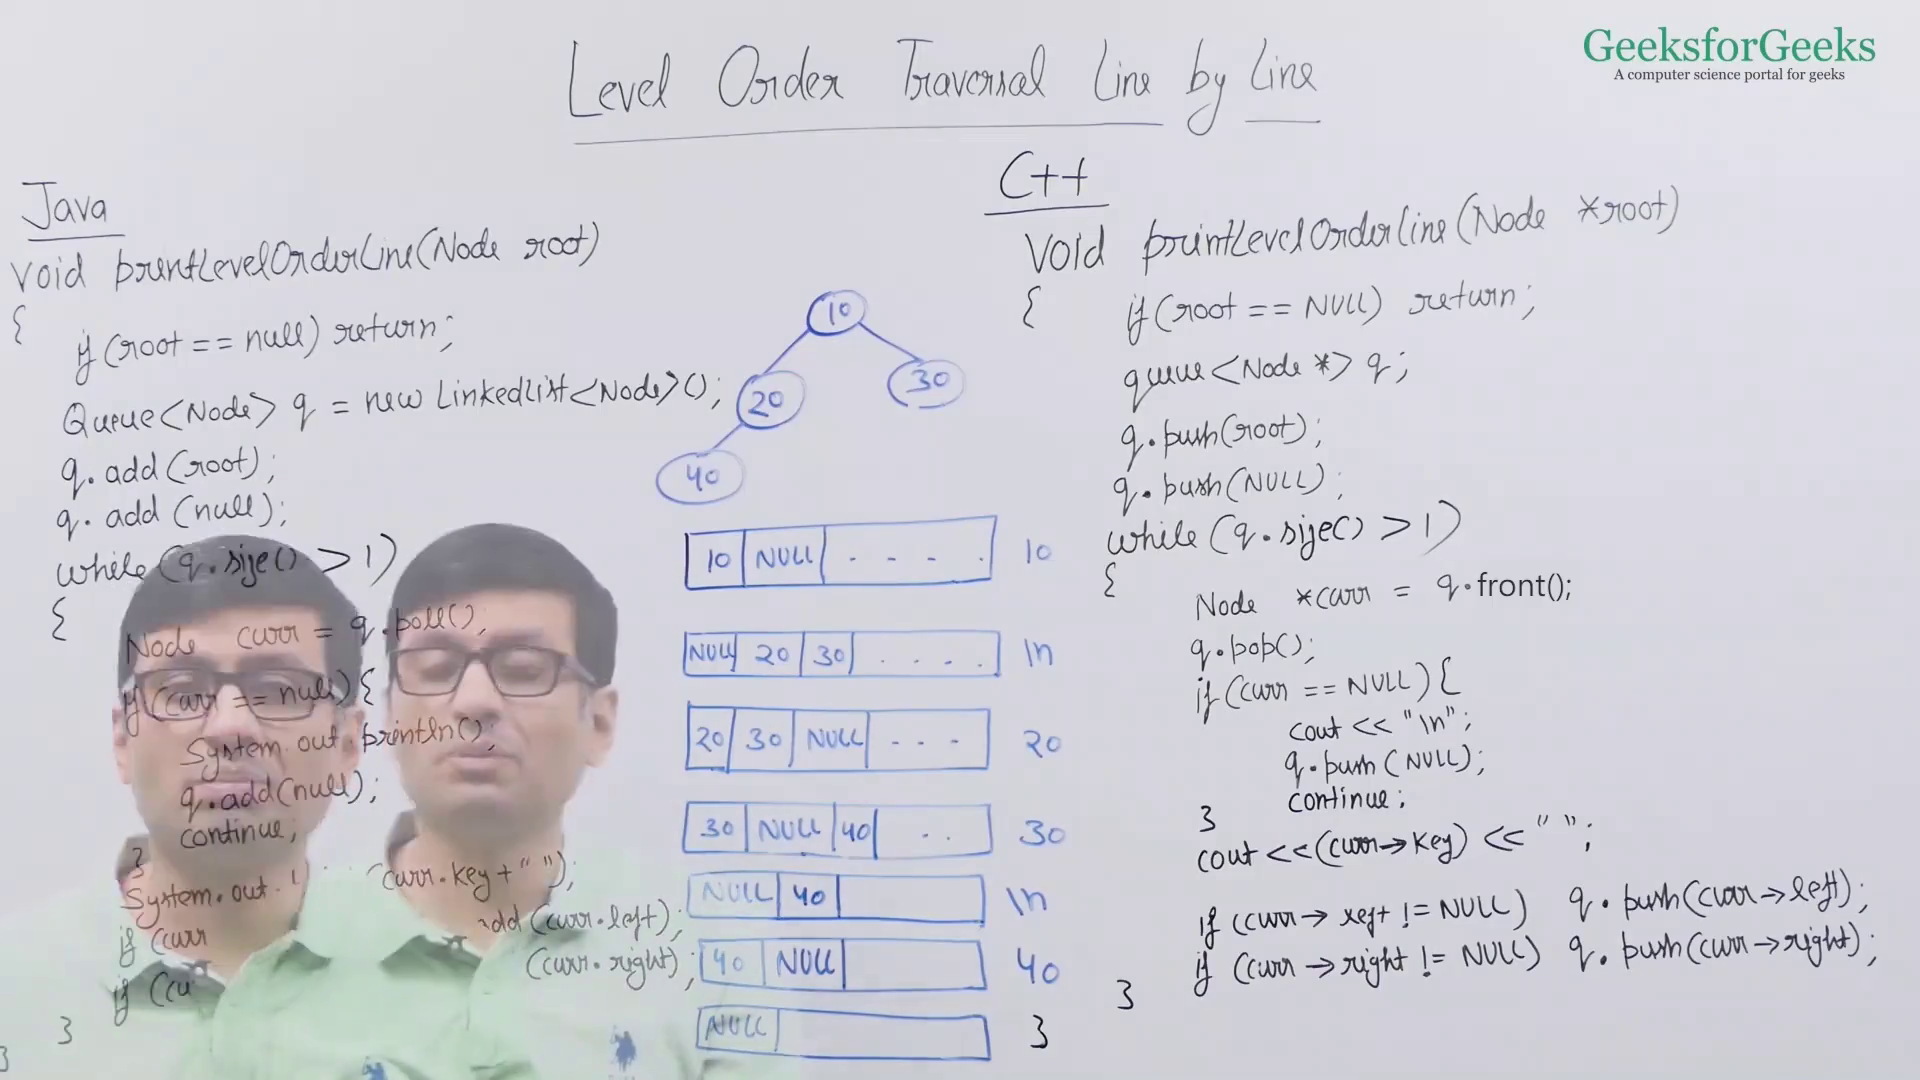 GeeksforGeeks
A computer science portal for geeks
Level Order Traversal Line by Line
Java
void printLevelOrderLine(Node root)
{
if (root == null) return;
Queue<Node> q = new LinkedList<Node>();
q.add(root);
q.add(null);
while (q.size() > 1)
{
Node curr = q.poll();
if (curr == null) {
System.out.println();
q.add(null);
continue;
}
System.out. (curr.key + " ");
if (curr add (curr.left);
if (cu (curr.right);
}
}
10
20 30
40
10 NULL . - - - . 10
NULL 20 30 . . . . . \n
20 30 NULL - - - 20
30 NULL 40 . . 30
NULL 40 \n
40 NULL 40
NULL
C++
void printLevelOrderLine(Node *root)
{
if (root == NULL) return;
queue<Node *> q;
q.push(root);
q.push(NULL);
while (q.size() > 1)
{
Node *curr = q.front();
q.pop();
if (curr == NULL) {
cout << "\n";
q.push(NULL);
continue;
}
cout << (curr→key) << " ";
if (curr→left != NULL) q.push(curr→left);
if (curr→right != NULL) q.push(curr→right);
}
}